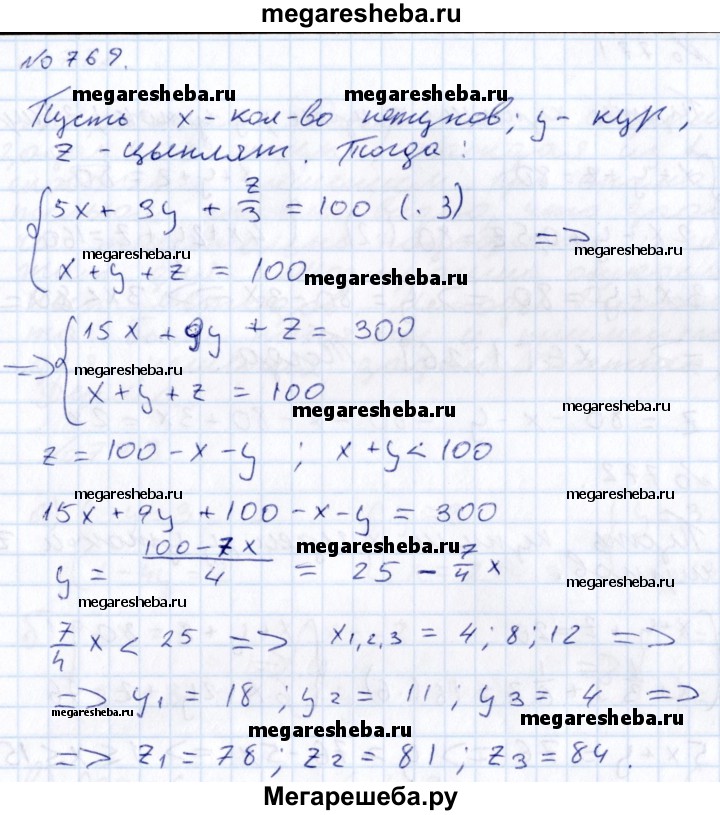 megaresheba.ru
№ 769.
megaresheba.ru megaresheba.ru
Пусть x - кол-во петухов; y - кур;
z - цыплят. Тогда:
5x + 3y + z/3 = 100 (· 3)
megaresheba.ru => megaresheba.ru
x + y + z = 100
megaresheba.ru
=> 15x + 9y + z = 300
megaresheba.ru
x + y + z = 100
megaresheba.ru megaresheba.ru
z = 100 - x - y ; x + y < 100
megaresheba.ru megaresheba.ru
15x + 9y + 100 - x - y = 300
megaresheba.ru
y = (100 - 7x)/4 = 25 - 7/4 x
megaresheba.ru megaresheba.ru
7/4 x < 25 => x1,2,3 = 4; 8; 12 =>
megaresheba.ru megaresheba.ru
=> y1 = 18 ; y2 = 11 ; y3 = 4 =>
megaresheba.ru megaresheba.ru
megaresheba.ru
=> z1 = 78 ; z2 = 81 ; z3 = 84 .
Мегарешеба.ру